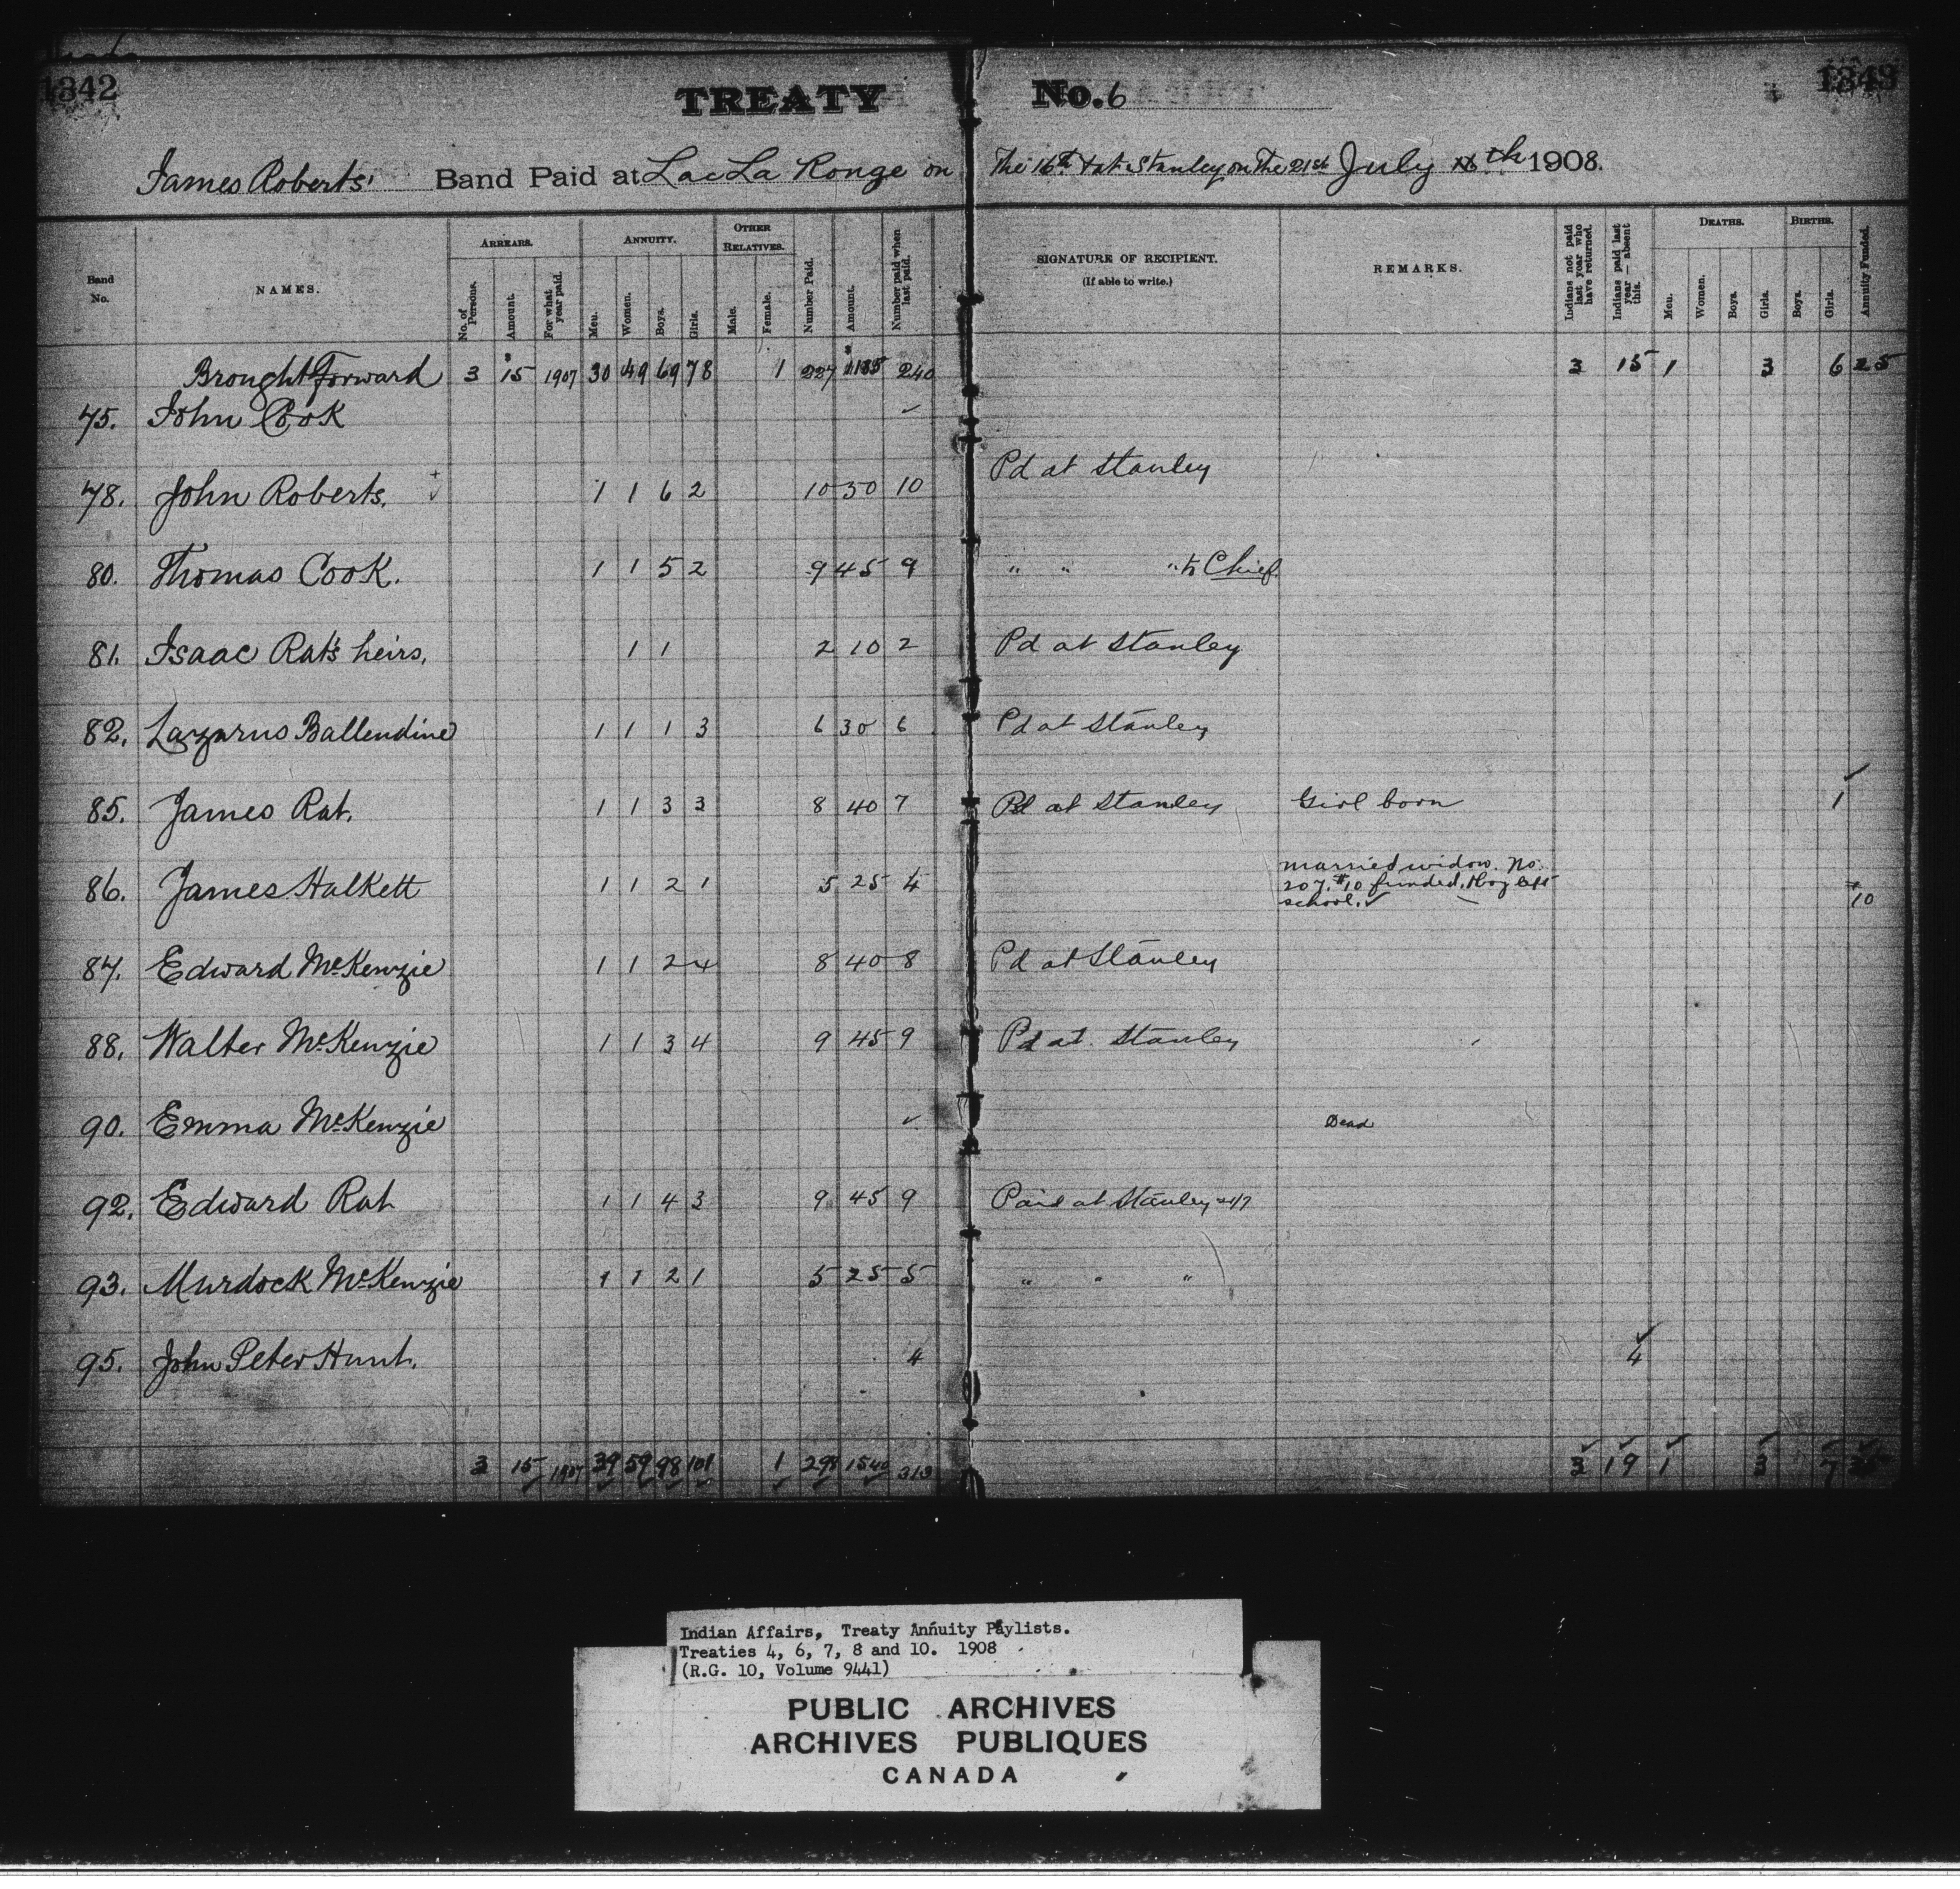 1342
TREATY No. 6
1343
James Roberts' Band Paid at Lac La Ronge on The 16th & at Stanley on The 21st July th 1908.
Band No. NAMES. ARREARS. No. of Persons. Amount. For what year paid. ANNUITY. Men. Women. Boys. Girls. OTHER RELATIVES. Male. Female. Number Paid. Amount. Number paid when last paid. SIGNATURE OF RECIPIENT. (If able to write.) REMARKS. Indians not paid last year who have returned. Indians paid last year — absent this. DEATHS. Men. Women. Boys. Girls. BIRTHS. Boys. Girls. Annuity Funded.
Brought Forward 3 $15 1907 30 49 69 78 1 227 $1135 240 3 15 1 3 6 25
75. John Cook ✓
78. John Roberts. 1 1 6 2 10 50 10 Pd at Stanley
80. Thomas Cook. 1 1 5 2 9 45 9 " " " Chief.
81. Isaac Rat's heirs. 1 1 2 10 2 Pd at Stanley
82. Lazarus Ballendine 1 1 1 3 6 30 6 Pd at Stanley
85. James Rat. 1 1 3 3 8 40 7 Pd at Stanley Girl born 1
86. James Halkett 1 1 2 1 5 25 4 married widow. No. 207. $10 funded. 1 boy left school. ✓ $10
87. Edward McKenzie 1 1 2 4 8 40 8 Pd at Stanley
88. Walter McKenzie 1 1 3 4 9 45 9 Pd at Stanley
90. Emma McKenzie ✓ Dead
92. Edward Rat 1 1 4 3 9 45 9 Paid at Stanley 21/7
93. Murdock McKenzie 1 1 2 1 5 25 5 " " "
95. John Peter Hunt. 4 4
3 15 1907 39 59 98 101 1 298 1540 313 3 19 1 3 7
Indian Affairs, Treaty Annuity Paylists.
Treaties 4, 6, 7, 8 and 10. 1908
(R.G. 10, Volume 9441)
PUBLIC ARCHIVES
ARCHIVES PUBLIQUES
CANADA